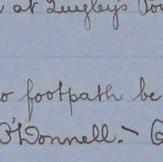 at Quigley's
footpath be
O'Donnell. -